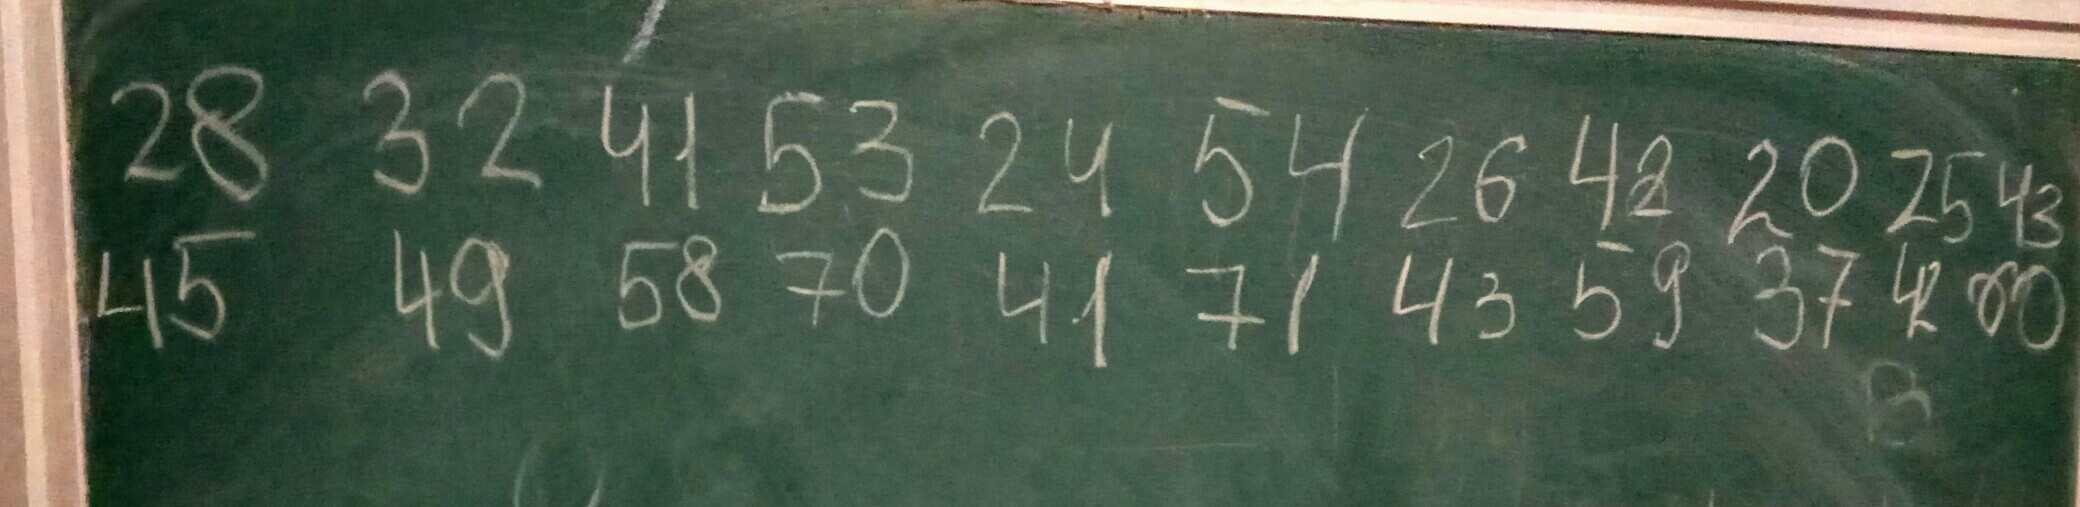 28 32 41 53 24 54 26 42 20 25 43
45 49 58 70 41 71 43 59 37 42 60